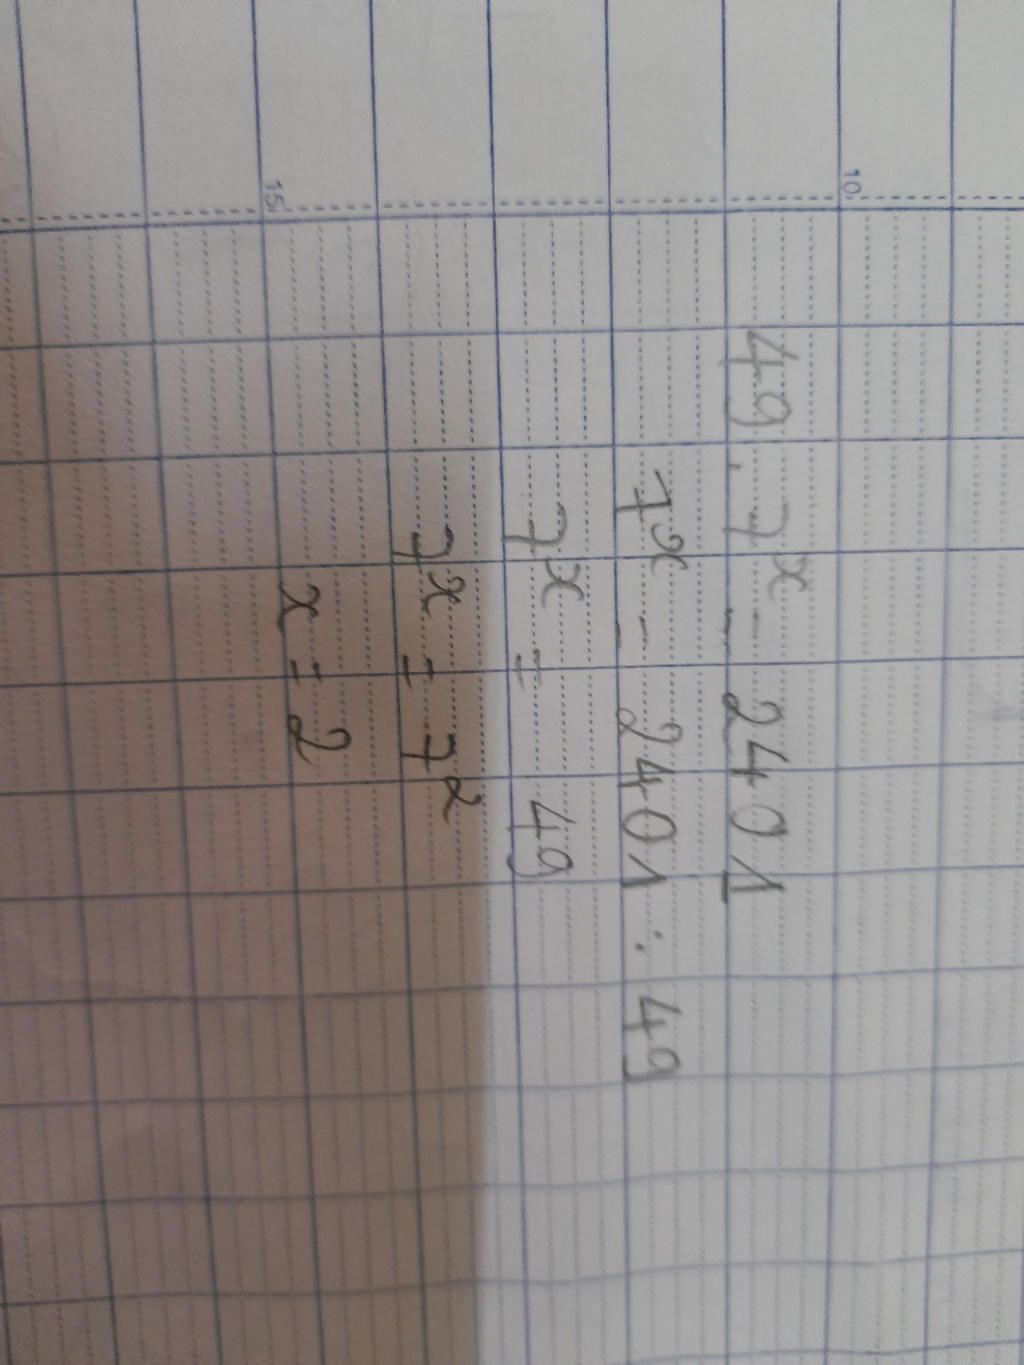 10
49 . 7ˣ = 2401
7ˣ = 2401 : 49
7ˣ = 49
7ˣ = 7²
15
x = 2